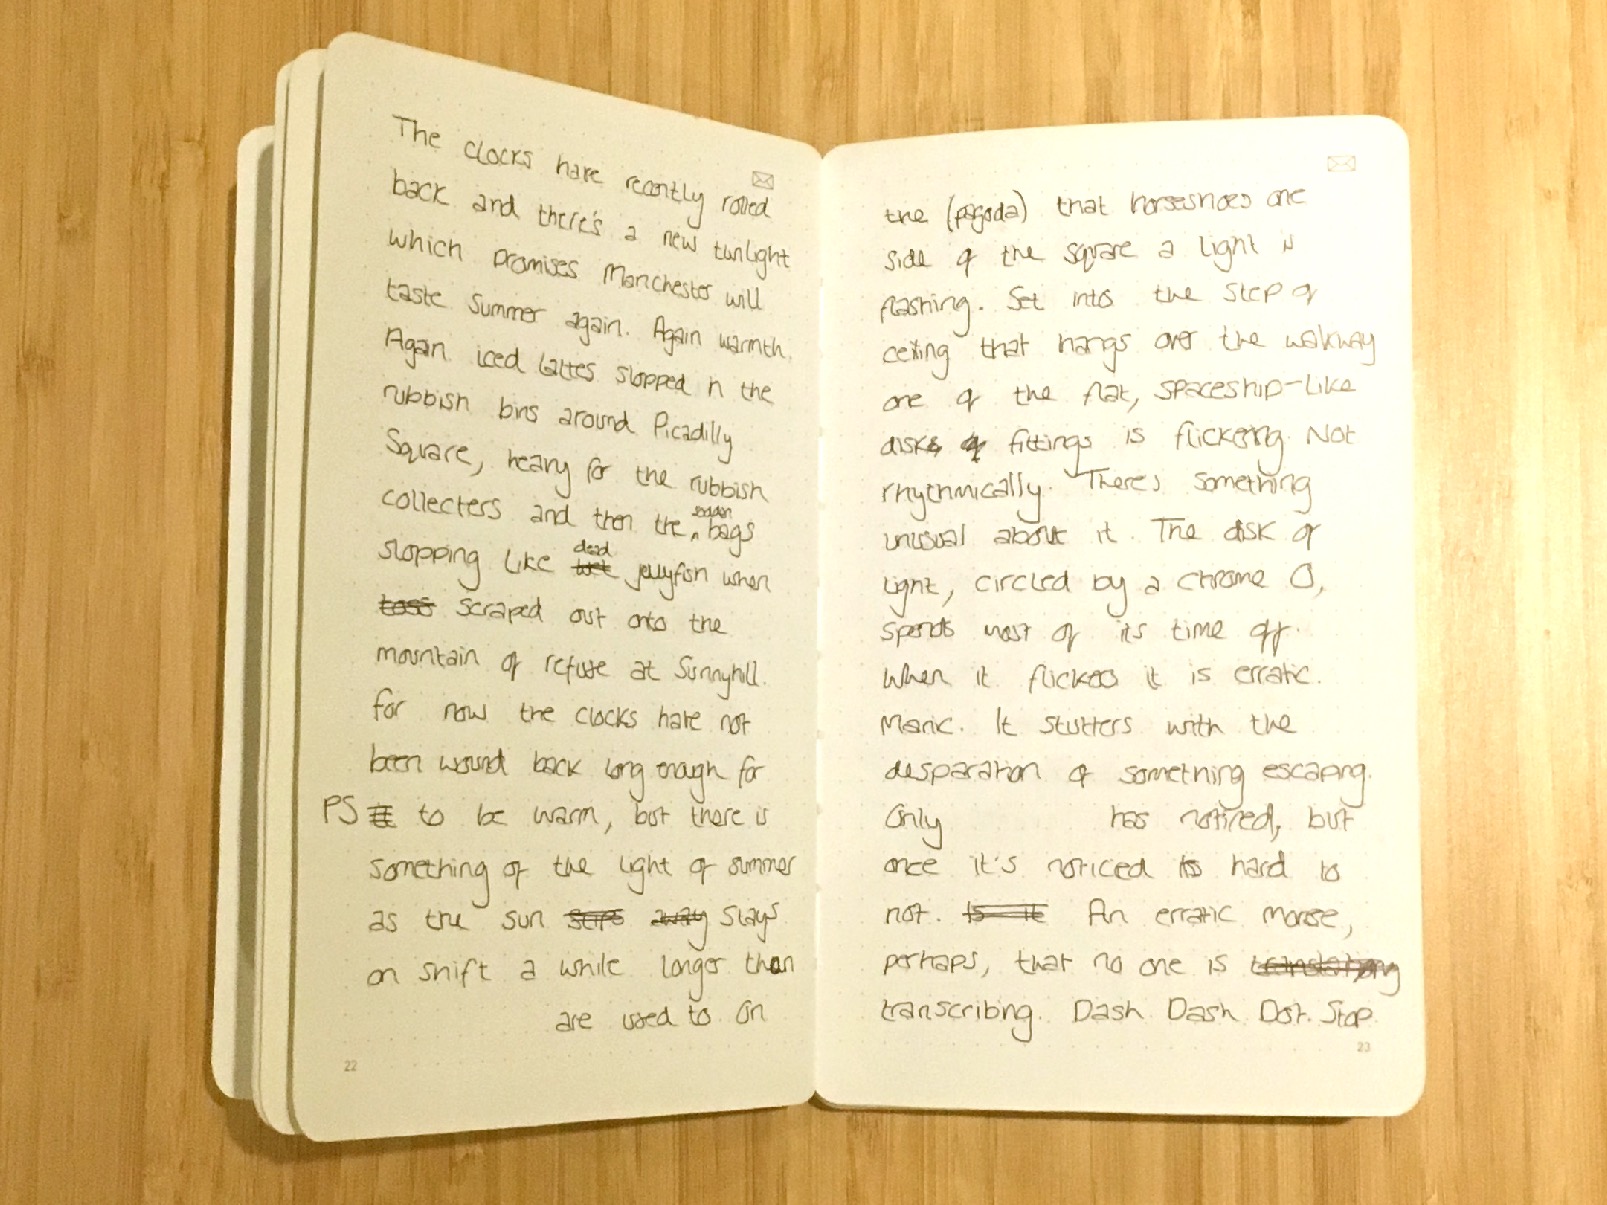 The clocks have recently rolled
back and there's a new twilight
which promises Manchester will
taste summer again. Again warmth.
Again iced lattes slopped in the
rubbish bins around Picadilly
Square, heavy for the rubbish
collecters and then the bags
slopping like dead wet jellyfish when
toss scraped out onto the
mountain of refuse at Sunnyhill.
For now the clocks have not
been wound back long enough for
PS to be warm, but there is
something of the light of summer
as the sun away stays
on shift a while longer than
are used to On
22
the (pagoda) that horseshoes one
side of the square a light is
flashing. Set into the step of
ceiling that hangs over the walkway
one of the flat, spaceship-like
disks of fittings is flickering. Not
rhythmically. There's something
unusual about it. The disk of
light, circled by a chrome O,
spends most of its time off.
When it flickers it is erratic.
Manic. It stutters with the
desparation of something escaping.
Only has noticed, but
once it's noticed its hard to
not. Is it An erratic morse,
perhaps, that no one is translating
transcribing. Dash Dash Dot. Stop.
23